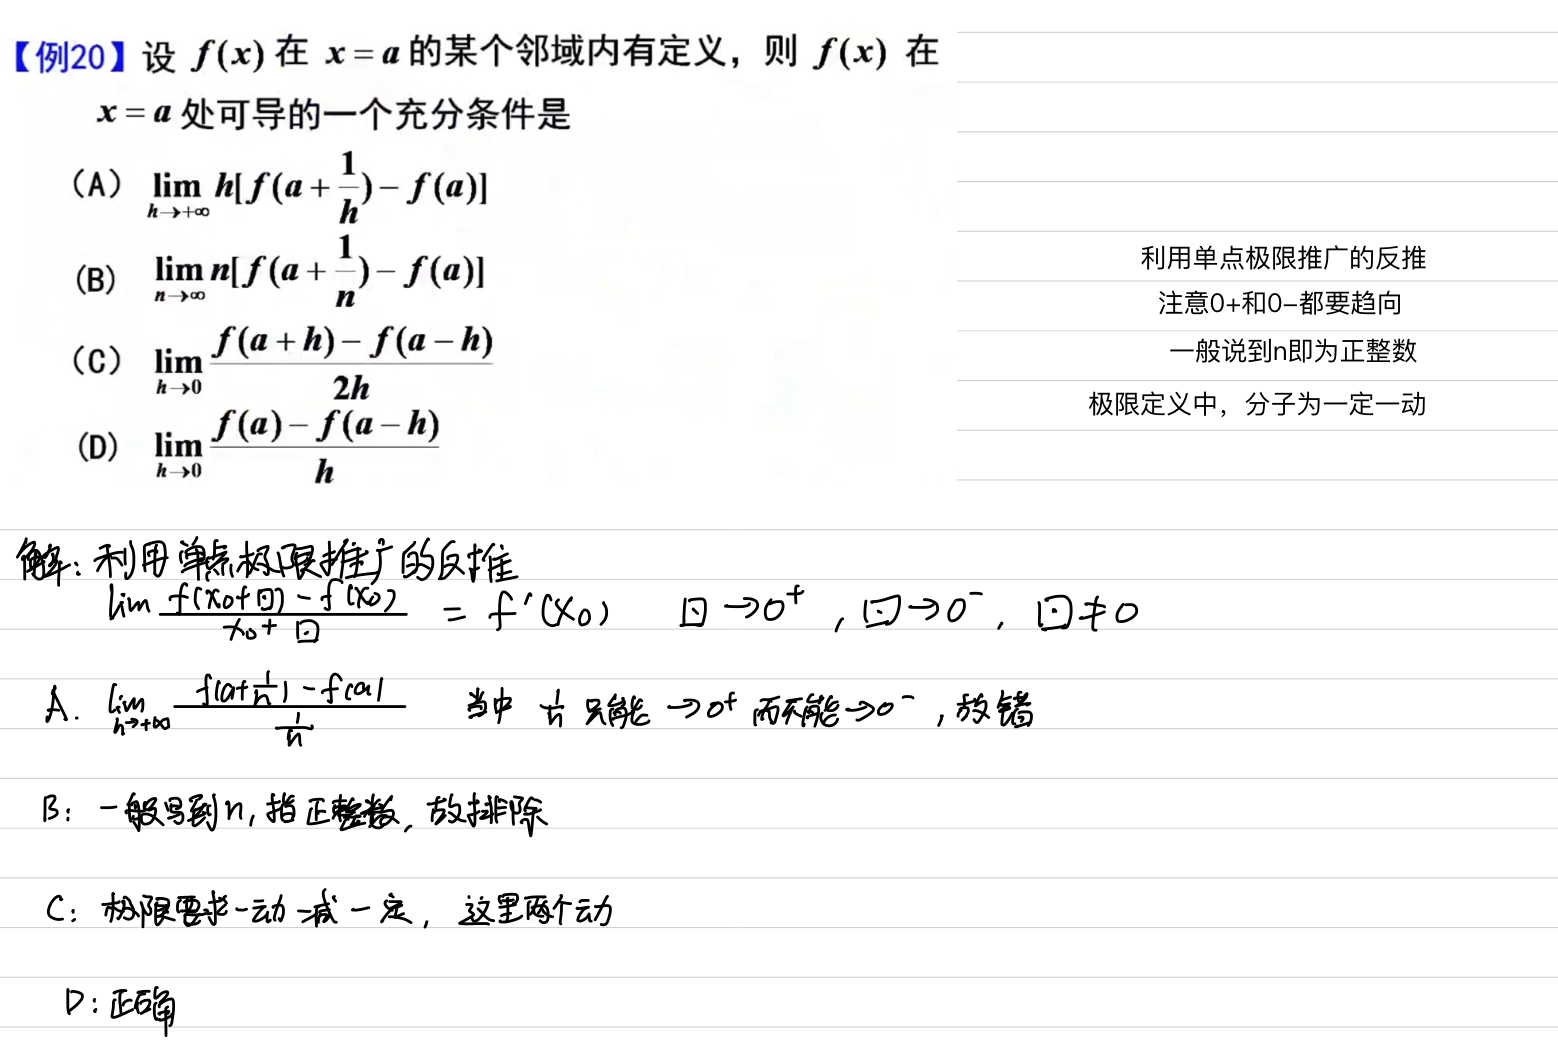 【例20】设 f(x) 在 x = a 的某个邻域内有定义，则 f(x) 在
x = a 处可导的一个充分条件是
(A) lim_{h→+∞} h[f(a + 1/h) − f(a)]
(B) lim_{n→∞} n[f(a + 1/n) − f(a)]
(C) lim_{h→0} (f(a + h) − f(a − h))/(2h)
(D) lim_{h→0} (f(a) − f(a − h))/h
利用单点极限推广的反推
注意0+和0−都要趋向
一般说到n即为正整数
极限定义中，分子为一定一动
解：利用单点极限推广的反推
lim (f(x₀+⊡) − f(x₀))/(x₀+⊡) = f′(x₀) ⊡→0⁺，⊡→0⁻，⊡≠0
A. lim_{h→+∞} (f(a+1/h) − f(a))/(1/h) 当中 1/h 只能→0⁺ 而不能→0⁻，故错
B：一般写到n，指正整数，故排除
C：极限要求一动减一定，这里两个动
D：正确